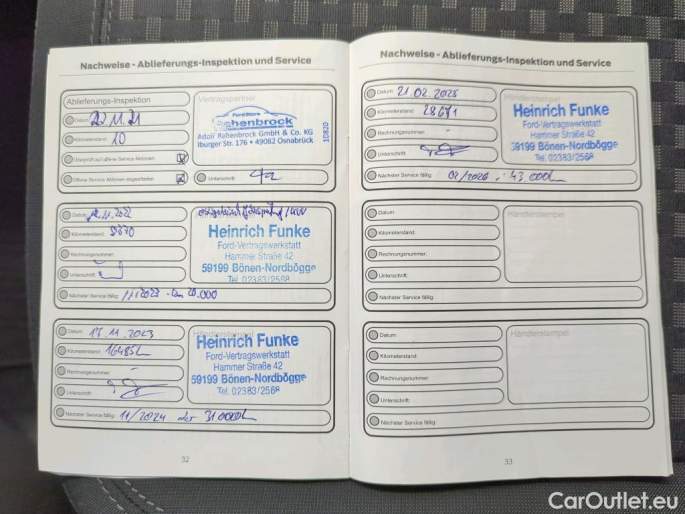 Nachweise - Ablieferungs-Inspektion und Service
Ablieferungs-Inspektion
Datum 22.11.21
Kilometerstand 10
Überprüft auf offene Service Aktionen
Offene Service Aktionen abgearbeitet
Vertragspartner
FordStore
Rahenbrock
Adolf Rahenbrock GmbH & Co. KG
Iburger Str. 176 • 49082 Osnabrück
Unterschrift
Datum .11.2022
Kilometerstand 9870
Rechnungsnummer
Unterschrift
Nächster Service fällig 11/2023 20.000
Heinrich Funke
Ford-Vertragswerkstatt
Hammer Straße 42
59199 Bönen-Nordbögge
Tel. 02383/2568
Datum 17.11.2023
Kilometerstand 16485
Rechnungsnummer -
Unterschrift
Nächster Service fällig 11/2024 oder 31000
Händlerstempel
Heinrich Funke
Ford-Vertragswerkstatt
Hammer Straße 42
59199 Bönen-Nordbögge
Tel. 02383/2568
32
Nachweise - Ablieferungs-Inspektion und Service
Datum 21.02.2025
Kilometerstand 28671
Rechnungsnummer -
Unterschrift
Nächster Service fällig 02/2026 43000
Händlerstempel
Heinrich Funke
Ford-Vertragswerkstatt
Hammer Straße 42
59199 Bönen-Nordbögge
Tel. 02383/2568
Datum
Kilometerstand
Rechnungsnummer
Unterschrift
Nächster Service fällig
Händlerstempel
Datum
Kilometerstand
Rechnungsnummer
Unterschrift
Nächster Service fällig
Händlerstempel
33
CarOutlet.eu